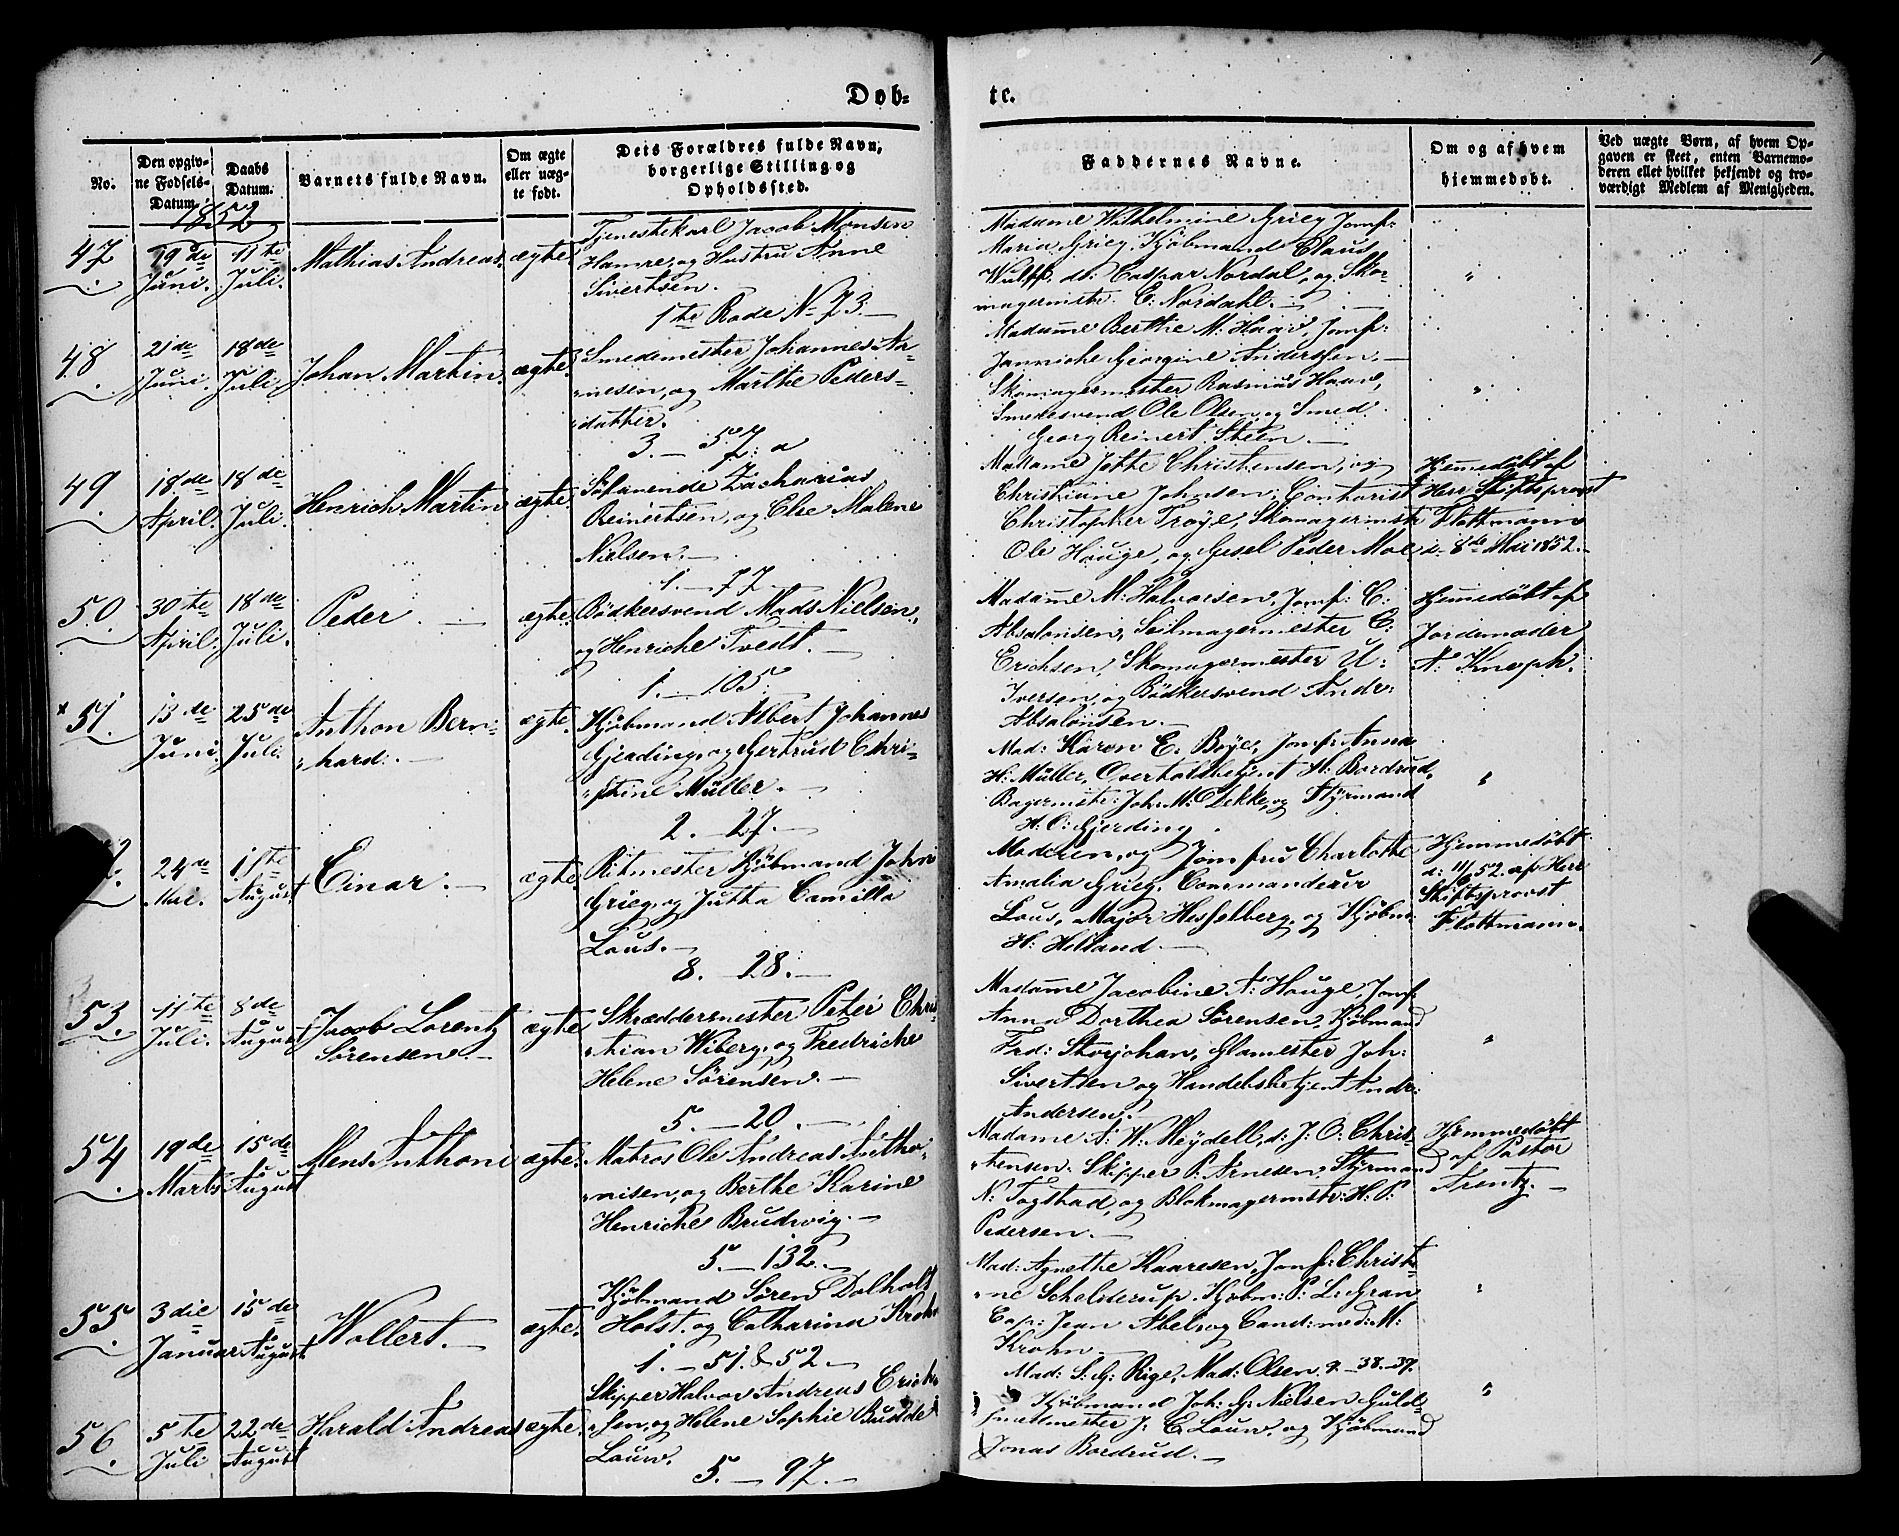 Døb-
te.
No.
Den opgiv-
ne Fødsels-
Datum.
Daabs
Datum.
Barnets fulde Navn.
Om ægte
eller uæg-
te født.
Dets Forældres fulde Navn,
borgerlige Stilling og
Opholdssted.
Faddernes Navne.
Om og af hvem
hjemmedøbt.
Ved uægte Børn, af hvem Op-
gaven er skeet, enten Barnemo-
deren eller hvilket bekjendt og tro-
værdigt Medlem af Menigheden.
1852
47
19de
Juni.
11te
Juli.
Mathias Andreas.
ægte.
Tjenestekarl Jacob Monsen
Hamre, og Hustru Anne
Sivertsen.
1te Rode No 73
Madame Wilhelmine Grieg, Jomf:
Maria Grieg, Kjöbmand Claus
Wulff. do: Caspar Nordal, og Sko-
magermstr: C: Nordahl.
48.
21de
Juni.
18de
Juli.
Johan Martin.
ægte.
Smedemester Johannes Ar-
nesen, og Marthe Peders-
datter.
3. - 57. a
Madame Berthe M: Haave, Jomf:
Jannicke Georgine Anderssen.
Skomagermester Rasmus Haave,
Smedesvend Ole Olsen, og Smed
Georg Reinert Steen.
49.
18de
April.
18de
Juli.
Henrich Martin
ægte.
Söfarende Zacharias
Reinertsen, og Else Malene
Nielsen.
1. - 77.
Madame Jette Christensen, og
Christiane Johnsen, Contorist
Christopher Troye, Skomagermstr
Ole Houge, og Gesel Peder Moe
Hjemmedöbt af
Herr Stiftsprovst
Flottmann
d. 8de Mai 1852.
50.
30te
April.
18de
Juli.
Peder.
ægte.
Bödkersvend Mads Nielsen,
og Henriche Tvedt.
1. - 105
Madame M: Halvorsen, Jomf: C:
Absalonsen, Seilmagermester C:
Erichsen, Skomagermester U:
Iversen, og Bödkersvend Andr:
Absalonsen.
Hjemmedöbt af
Jordemoder
A: Knoph.
x 51.
13de
Juni.
25de
Juli.
Anthon Bern-
hard.
ægte.
Kjöbmand Albert Johannes
Gjerding, og Gertrud Chri-
stine Müller.
2. - 27.
Mad: Karen E. Böye, Jomf: Anna
H: Müller, Overtoldbetjent H: Bordrud,
Bagermstr: Joh: M: Dekke, og Styrmand
H: O: Gjerding.
24de
Mai.
1ste
August
Einar.
ægte.
Ritmester Kjöbmand John
Grieg, og Jutta Camilla
Lous.
8. - 28.
Moderen, og Jomfru Charlotte
Amalia Grieg. Commandeur
Lous, Major Hesselberg, og Kjöbm:
H: Helland.
Hjemmedöbt
d: 11/6 52. af Herr
Stiftsprovst
Flottmann.
53.
11te
Juli.
8de
August
Jacob Lorentz
Sörensen.
ægte
Skræddermester Peter Chris-
tian Wiberg, og Fredriche
Helene Sörensen.
5. - 20.
Madame Jacobine A: Houge, Jomf
Anna Dorthea Sörensen, Kjöbmand
Frd: Storjohan, Glamester Joh:
Sivertsen og Handelsbetjent Andr:
Andersen.
54.
19de
Marts
15de
August
Mens Anthoni
ægte.
Matros Ole Andreas Antho-
nisen, og Berthe Karine
Henriche Brudvig.
5. - 132.
Madame A: W: Meydell, d: J: O: Chris-
tensen. Skipper P: Arnesen, Styrmand
N: Fogstad, og Blokmagermstr: H: P:
Pedersen.
Hjemmedöbt
af Pastor
Frentz.
55.
3die
Januar
15de
August
Wollert.
ægte.
Kjöbmand Sören Dolholt
Holst, og Catharina Krohn
1. - 51. & 52.
Mad: Agnethe Kaaresen, Jomf: Christi-
ne Schelderup, Kjöbm: P: L: Gran
Cap: Jean Abel, og Cand: med: M:
Krohn.
56.
5te
Juli
22de
August
Harald Andreas
ægte.
Skipper Halvor Andreas Erich-
sen, og Helene Sophie Budde
Louw.
5. - 97.
Mad: S: G: Rige, Mad: Olsen, 9. - 38. - 37.
Kjöbmand Joh: G: Nielsen, Guld-
smedmester J: C Louw, og Kjöbmand
Jonas Bordrud.